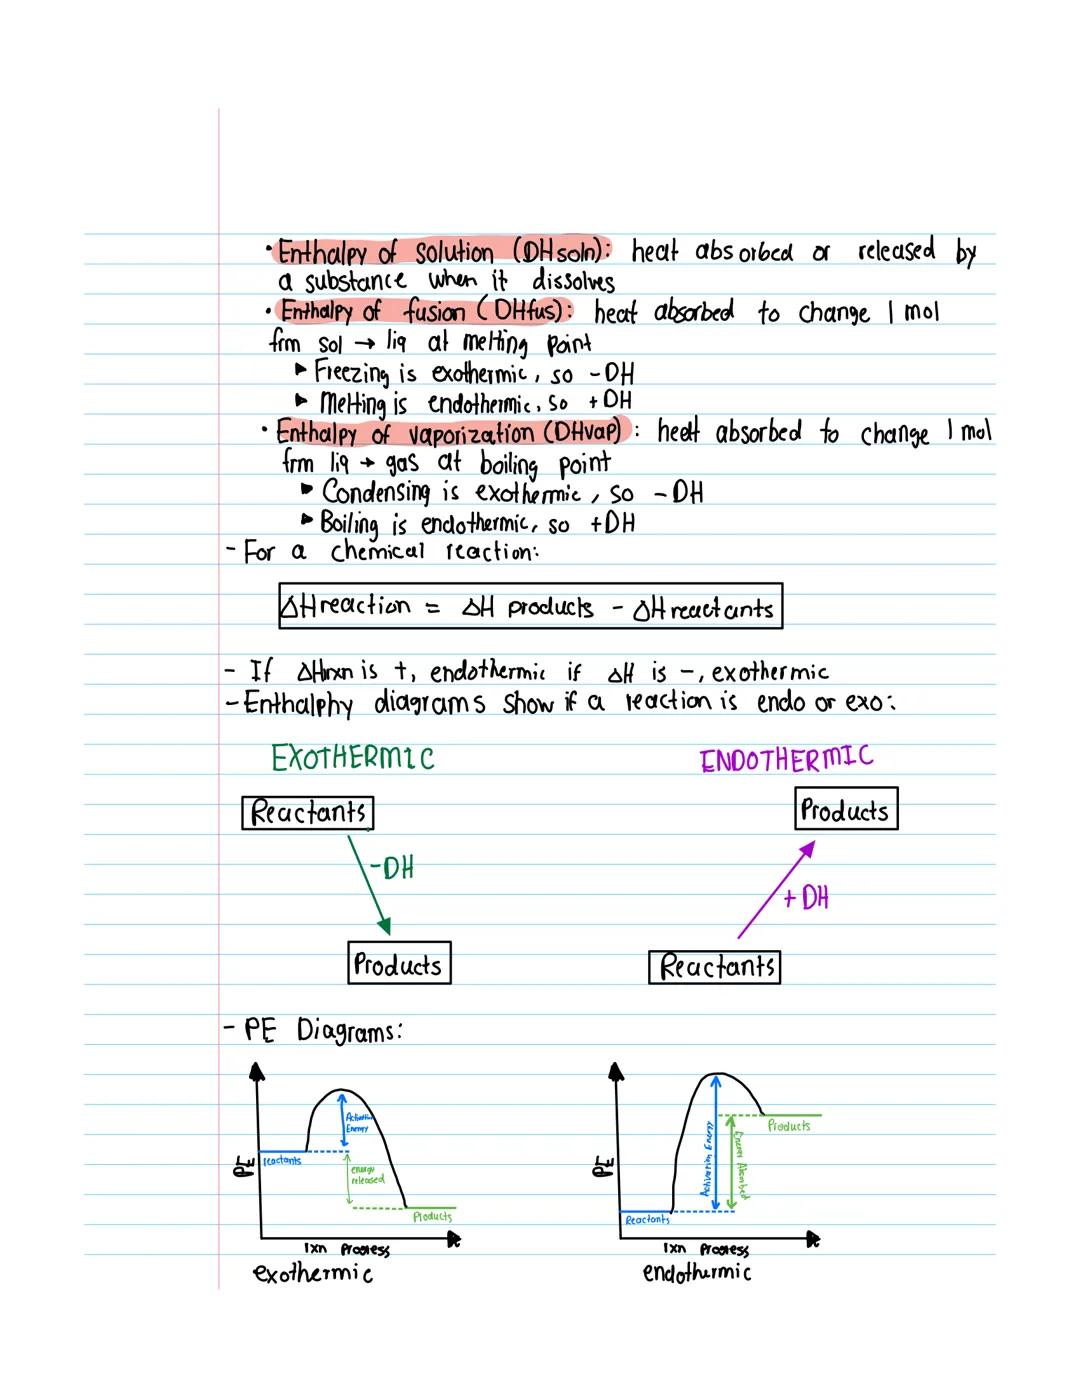 • Enthalpy of solution (DHsoln): heat absorbed or released by
a substance when it dissolves
• Enthalpy of fusion (DHfus): heat absorbed to change 1 mol
frm sol → liq at melting point
▸ Freezing is exothermic, so -DH
▸ Melting is endothermic, so +DH
• Enthalpy of vaporization (DHvap): heat absorbed to change 1 mol
frm liq → gas at boiling point
▸ Condensing is exothermic, so -DH
▸ Boiling is endothermic, so +DH
- For a chemical reaction:
ΔHreaction = ΔH products - ΔHreactants
- If ΔHrxn is +, endothermic if ΔH is -, exothermic
- Enthalphy diagrams show if a reaction is endo or exo:
EXOTHERMIC
Reactants
-DH
Products
ENDOTHERMIC
Products
+ DH
Reactants
- PE Diagrams:
PE
reactants
Activation
Energy
energy
released
Products
rxn Progress
exothermic
PE
Reactants
Activation Energy
Energy Absorbed
Products
rxn Progress
endothermic